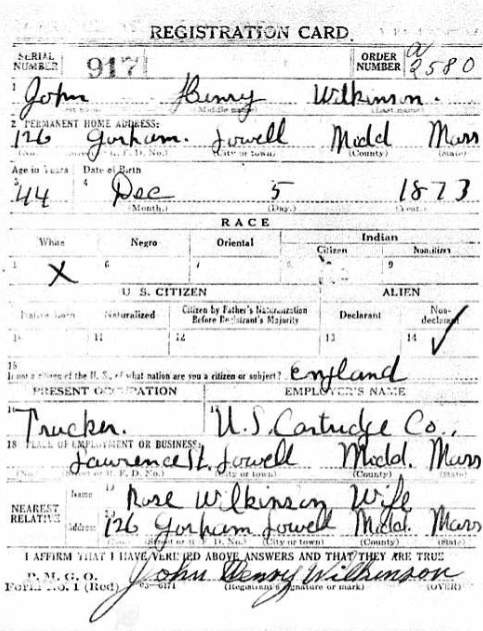 REGISTRATION CARD
SERIAL NUMBER 917 ORDER NUMBER a 2580
1 John Henry Wilkinson.
(Middle name) (Last name)
2 PERMANENT HOME ADDRESS:
126 Gorham. Lowell Midd Mass
(No.) (City or town) (County) (State)
Age in Years Date of Birth
3 44 4 Dec 5 1873
(Month.) (Day.) (Year.)
RACE
White Negro Oriental Indian
Citizen Noncitizen
5 X 6 7 8 9
U. S. CITIZEN ALIEN
Native Born Naturalized Citizen by Father's Naturalization Before Registrant's Majority Declarant Non-declarant
10 11 12 13 14 ✓
15
If not a citizen of the U. S., of what nation are you a citizen or subject? England
PRESENT OCCUPATION EMPLOYER'S NAME
16 Trucker. 17 U.S. Cartridge Co.,
18 PLACE OF EMPLOYMENT OR BUSINESS:
Lawrence St. Lowell Midd. Mass
(No.) (Street or R. F. D. No.) (City or town) (County) (State)
NEAREST RELATIVE
Name 19 Rose Wilkinson Wife
Address 20 126 Gorham Lowell Midd. Mass
(No.) (Street or R. F. D. No.) (City or town) (County) (State)
I AFFIRM THAT I HAVE VERIFIED ABOVE ANSWERS AND THAT THEY ARE TRUE
P. M. G. O.
Form No. 1 (Red) 03—6171 John Henry Wilkinson
(Registrant's signature or mark) (OVER)